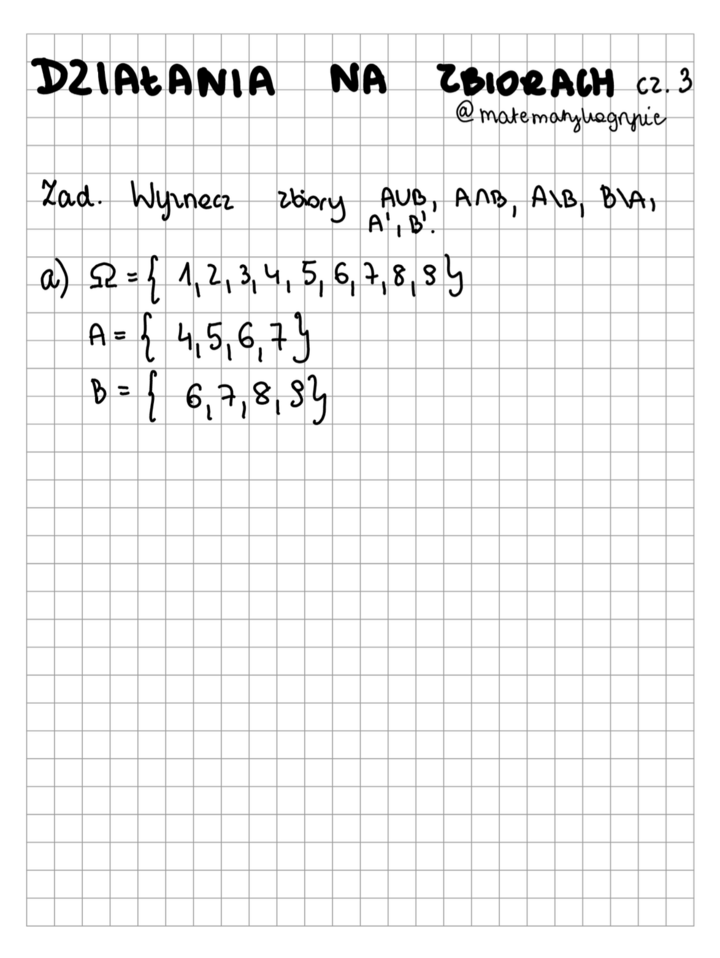 DZIAŁANIA NA ZBIORACH cz. 3
@matematykogrypie
Zad. Wyznacz zbiory A∪B, A∩B, A\B, B\A,
A', B'.
a) Ω = { 1, 2, 3, 4, 5, 6, 7, 8, 9 }
A = { 4, 5, 6, 7 }
B = { 6, 7, 8, 9 }